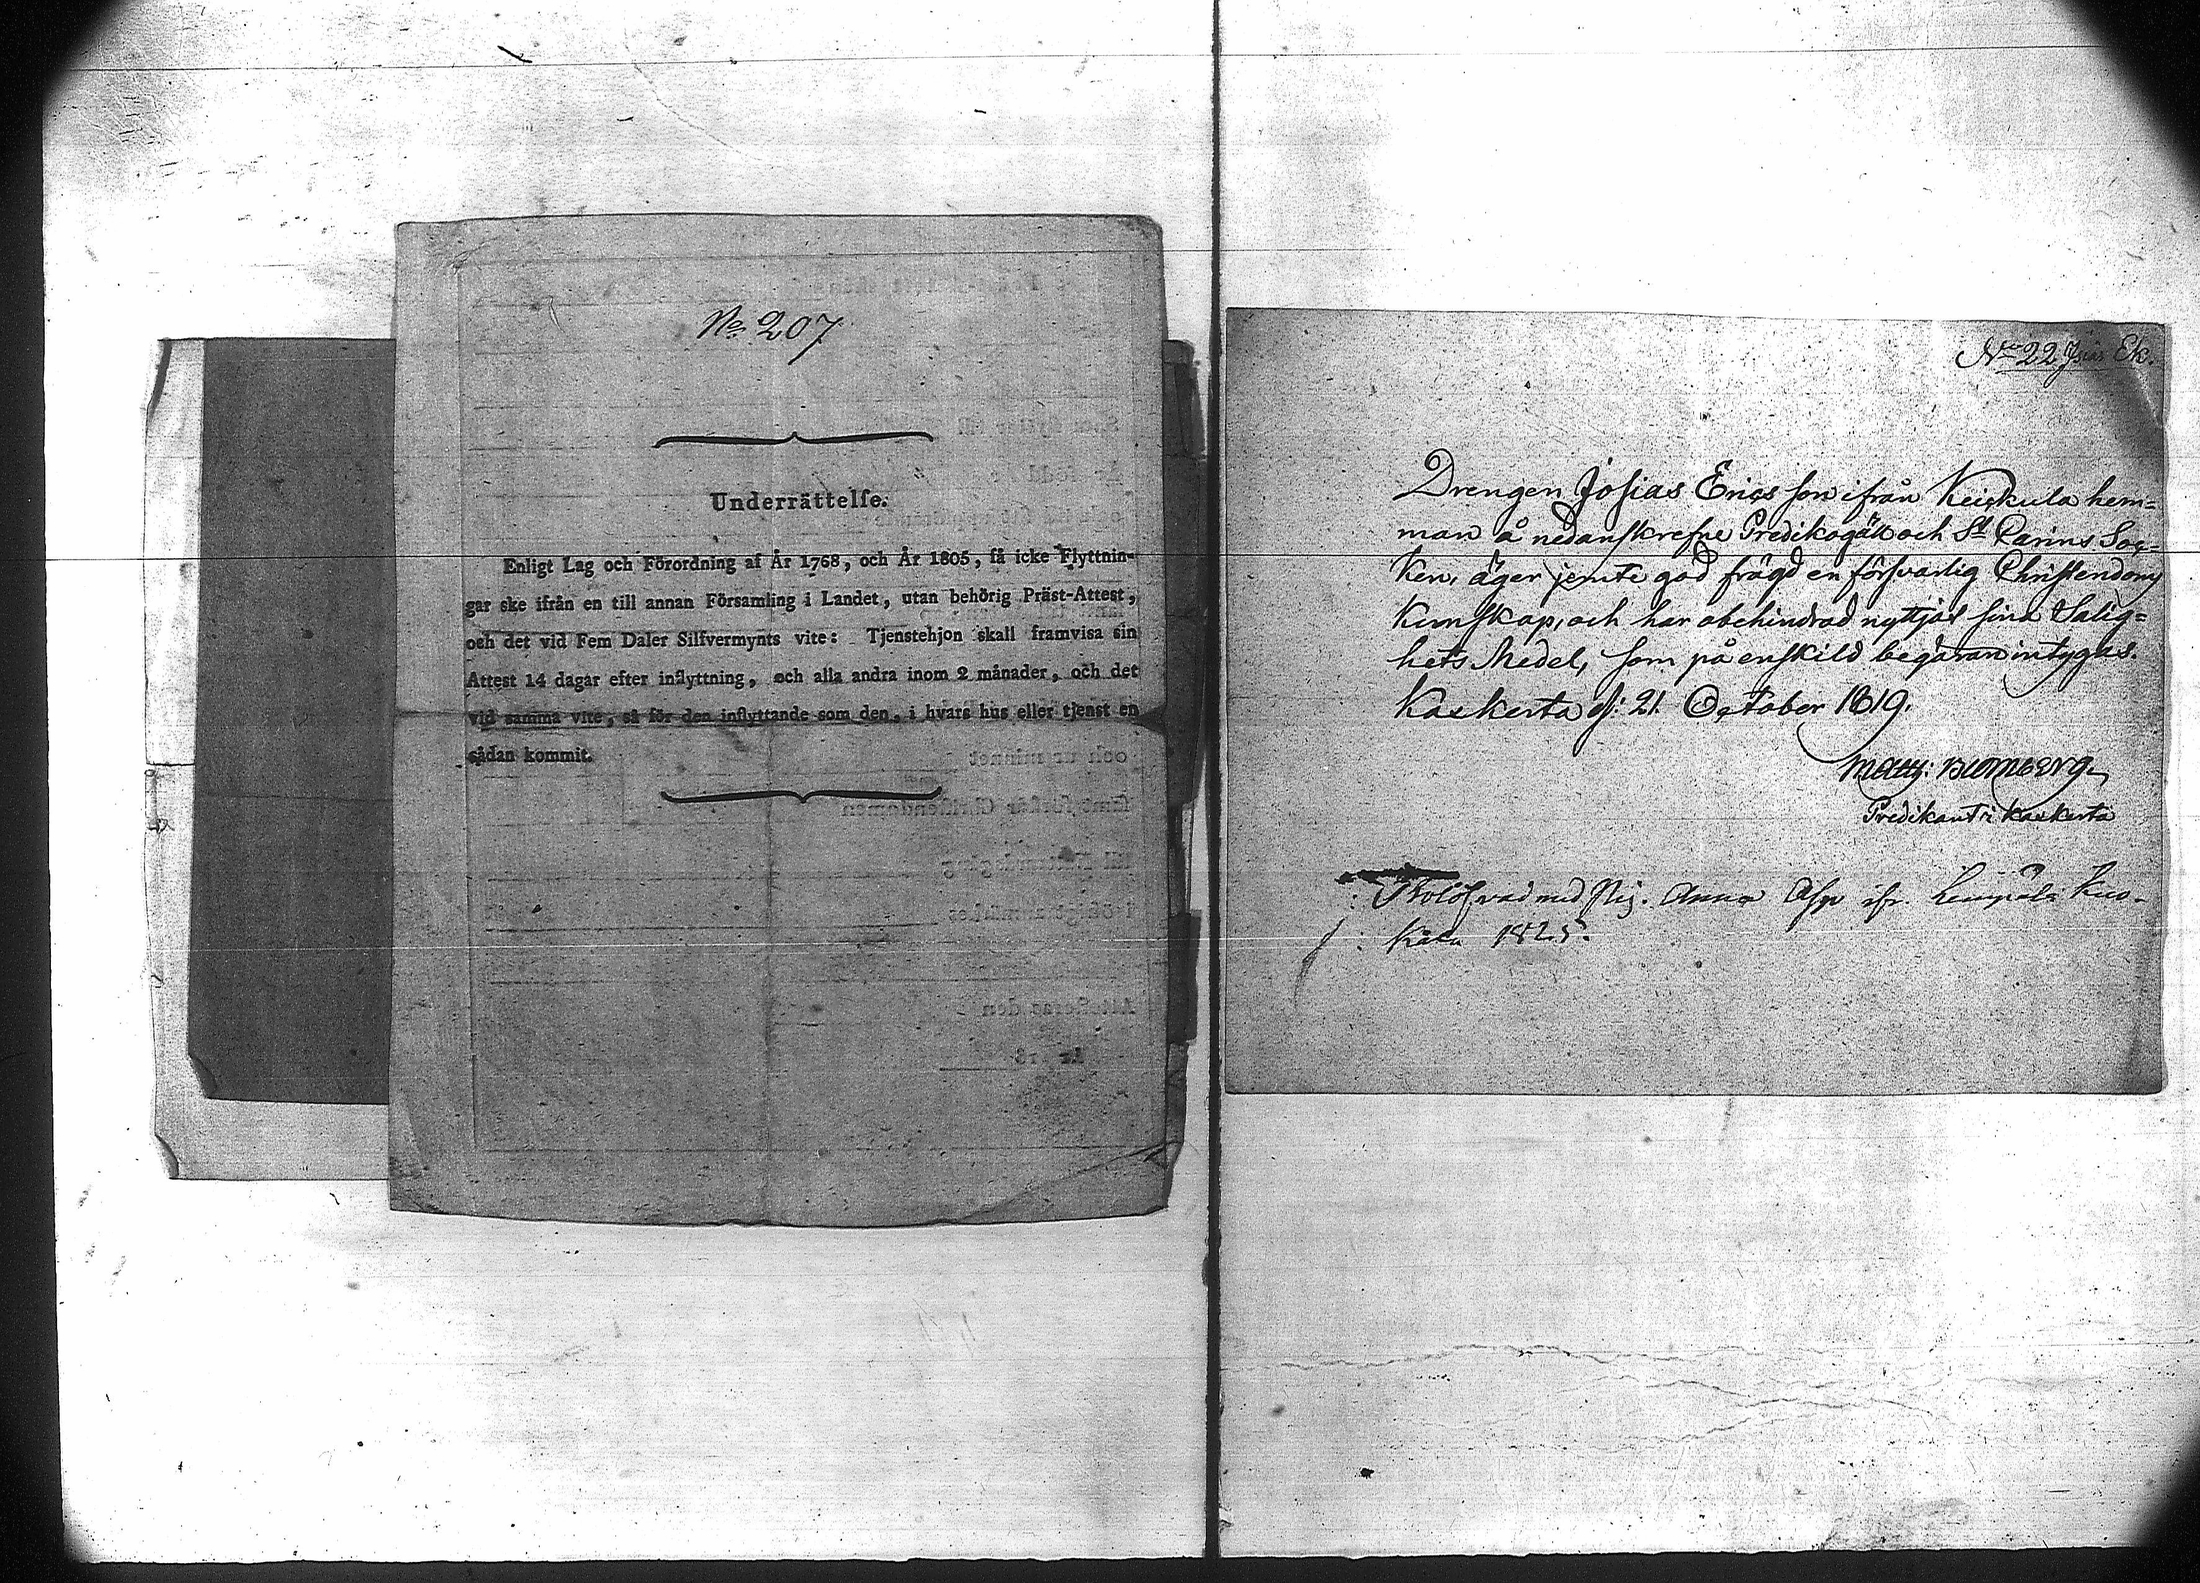 No. 207
Underrättelſe.
Enligt Lag och Förordning af År 1768, och År 1805, få icke Flyttnin-
gar ske ifrån en till annan Församling i Landet, utan behörig Präst-Attest,
och det vid Fem Daler Silfvermynts vite: Tjenstehjon skall framvisa sin
Attest 14 dagar efter inflyttning, och alla andra inom 2 månader, och det
vid samma vite, så för den inflyttande som den, i hvars hus eller tjenst en
sådan kommit.
No 22 Ek.
Drengen Josias Ericsson ifrån hem=
man å nedanskrefne Predikogäll och St Carins Soc=
ken, äger jemte god frägd en försvarlig Christendoms
Kunskap, och har obehindrad nyttjat sina Salig=
hets Medel, som på enskild begäran intygas.
Kaskerta d: 21. October 1819.
Matth: Blomberg
Predikant i Kaskerta
med Pig. Anna Asp ifr.
1825.